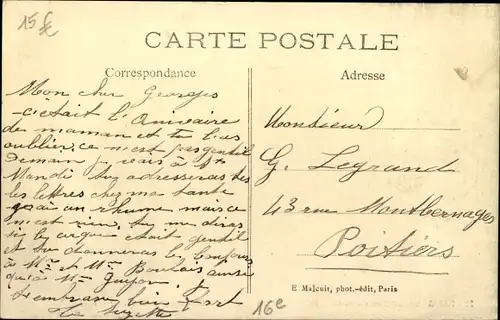 15 €
CARTE POSTALE
Correspondance
Adresse
Mon cher Georges
c'était l'
de maman et tu l'as
oublier, ce n'est pas gentil
Demain je vais à St
Mandé tu adresseras tes
les lettres chez ma tante
j'ai un rhume mais ce
n'est rien, tu me diras
si le cirque était gentil
et tu donneras le bonjour
à Mr et Mme ainsi
qu'à Mme Guyon. Je
t'embrasse bien fort
Ta Suzette
Monsieur
G. Legrand
43 rue Montbernages
Poitiers
E Malcuit, phot.-édit, Paris
16e